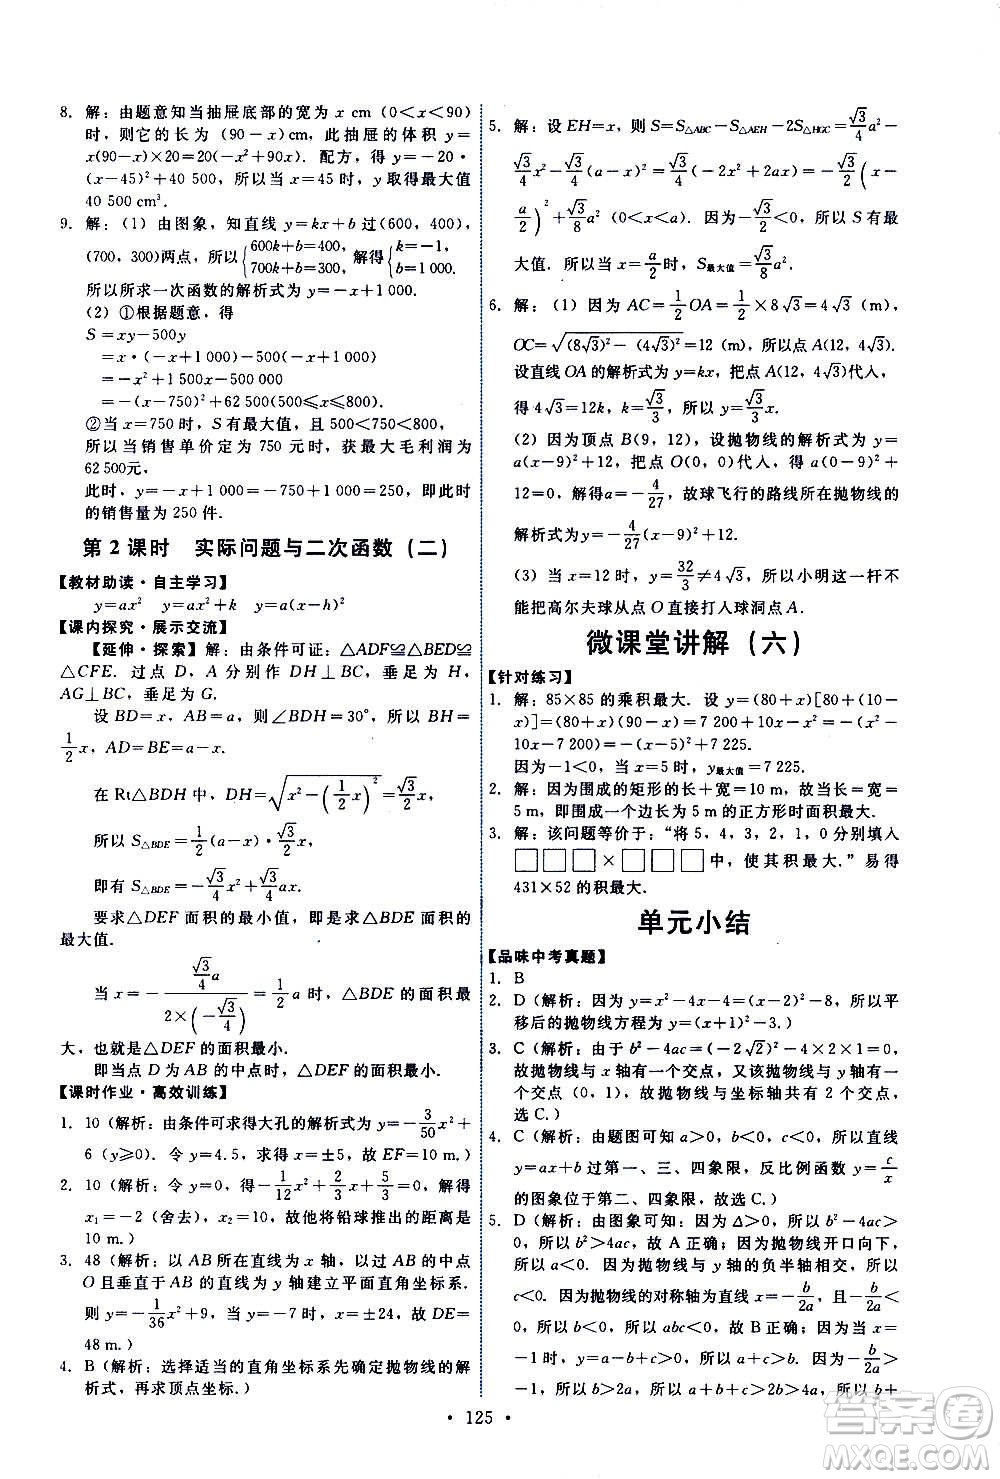 8. 解：由题意知当抽屉底部的宽为 x cm (0＜x＜90)
时，则它的长为 (90－x)cm，此抽屉的体积 y＝
x(90－x)×20＝20(－x²＋90x). 配方，得 y＝－20·
(x－45)²＋40 500，所以当 x＝45 时，y 取得最大值
40 500 cm³.
9. 解：(1) 由图象，知直线 y＝kx＋b 过(600，400)，
(700，300)两点，所以{600k＋b＝400， 700k＋b＝300， 解得{k＝－1， b＝1 000，
所以所求一次函数的解析式为 y＝－x＋1 000.
(2) ①根据题意，得
S＝xy－500y
＝x·(－x＋1 000)－500(－x＋1 000)
＝－x²＋1 500x－500 000
＝－(x－750)²＋62 500(500≤x≤800).
②当 x＝750 时，S 有最大值，且 500＜750＜800，
所以当销售单价定为 750 元时，获最大毛利润为
62 500元，
此时，y＝－x＋1 000＝－750＋1 000＝250，即此时
的销售量为 250 件.
第 2 课时 实际问题与二次函数（二）
【教材助读·自主学习】
y＝ax² y＝ax²＋k y＝a(x－h)²
【课内探究·展示交流】
【延伸·探索】解：由条件可证：△ADF≌△BED≌
△CFE. 过点 D，A 分别作 DH⊥BH，垂足为 H，
AG⊥BG，垂足为 G.
设 BD＝x，AB＝a，则∠BDH＝30°，所以 BH＝
1/2 x，AD＝BE＝a－x.
在 Rt△BDH 中，DH＝√(x²－(1/2 x)²)＝√3/2 x，
所以 S△BDE＝1/2(a－x)·√3/2 x，
即有 S△BDE＝－√3/4 x²＋√3/4 ax.
要求△DEF 面积的最小值，即是求△BDE 面积的
最大值.
当 x＝－(√3/4 a)/(2×(－√3/4))＝1/2 a 时，△BDE 的面积最
大，也就是△DEF 的面积最小.
即当点 D 为 AB 的中点时，△DEF 的面积最小.
【课时作业·高效训练】
1. 10 (解析：由条件可求得大孔的解析式为 y＝－3/50 x²＋
6 (y≥0). 令 y＝4.5，求得 x＝±5，故 EF＝10 m.)
2. 10 (解析：令 y＝0，得－1/12 x²＋2/3 x＋5/3＝0，解得
x₁＝－2 (舍去)，x₂＝10，故他将铅球推出的距离是
10 m.)
3. 48 (解析：以 AB 所在直线为 x 轴，以过 AB 的中点
O 且垂直于 AB 的直线为 y 轴建立平面直角坐标系.
则 y＝－1/36 x²＋9，当 y＝－7 时，x＝±24，故 DE＝
48 m.)
4. B (解析：选择适当的直角坐标系先确定抛物线的解
析式，再求顶点坐标.)
5. 解：设 EH＝x，则 S＝S△ABC－S△AEH－2S△HGC＝√3/4 a²－
√3/4 x²－√3/4 (a－x)²＝－√3/2 x²＋√3/2 ax＝－√3/2 (x－
a/2)²＋√3/8 a² (0＜x＜a). 因为－√3/2＜0，所以 S 有最
大值. 当 x＝a/2 时，S最大值＝√3/8 a².
6. 解：(1) 因为 AC＝1/2 OA＝1/2×8√3＝4√3 (m)，
OC＝√((8√3)²－(4√3)²)＝12 (m)，所以点 A(12，4√3).
设直线 OA 的解析式为 y＝kx，把点 A(12，4√3)代入，
得 4√3＝12k，k＝√3/3，所以 y＝√3/3 x.
(2) 因为顶点 B(9，12)，设抛物线的解析式为 y＝
a(x－9)²＋12，把点 O(0，0)代入，得 a(0－9)²＋
12＝0，解得a＝－4/27，故球飞行的路线所在抛物线的
解析式为 y＝－4/27 (x－9)²＋12.
(3) 当 x＝12 时，y＝32/3≠4√3，所以小明这一杆不
能把高尔夫球从点 O 直接打入球洞点 A.
微课堂讲解（六）
【针对练习】
1. 解：85×85 的乘积最大. 设 y＝(80＋x)[80＋(10－
x)]＝(80＋x)(90－x)＝7 200＋10x－x²＝－(x²－
10x－7 200)＝－(x－5)²＋7 225.
因为－1＜0，所以当 x＝5 时，y最大值＝7 225.
2. 解：因为围成的矩形的长＋宽＝10 m，故当长＝宽＝
5 m，即围成一个边长为 5 m 的正方形时面积最大.
3. 解：该问题等价于：“将 5，4，3，2，1，0 分别填入
□□□×□□□中，使其积最大.” 易得
431×52 的积最大.
单元小结
【品味中考真题】
1. B
2. D (解析：因为 y＝x²－4x－4＝(x－2)²－8，所以平
移后的抛物线方程为 y＝(x＋1)²－3.)
3. C (解析：由于 b²－4ac＝(－2√2)²－4×2×1＝0，
故抛物线与 x 轴有一个交点，又该抛物线与 y 轴有一
个交点 (0，1)，故抛物线与坐标轴共有 2 个交点，
选 C.)
4. C (解析：由题图可知 a＞0，b＜0，c＜0，所以直线
y＝ax＋b 过第一、三、四象限，反比例函数 y＝c/x
的图象位于第二、四象限，故选 C.)
5. D (解析：由图象可知：因为 Δ＞0，所以 b²－4ac＞
0，所以 b²＞4ac，故 A 正确；因为抛物线开口向下，
所以 a＜0. 因为抛物线与 y 轴的负半轴相交，所以
c＜0. 因为抛物线的对称轴为直线 x＝－b/2a，且－b/2a＜
0，所以 b＜0，所以 abc＜0，故 B 正确；当 x＝－1
时，y＞0，所以 a－b＋c＞0，故 C 正确；因为－b/2a＞
－1，所以 b＞2a，所以 a＋b＞3a，所以 b＋
· 125 ·
答案圈
MXQE.COM